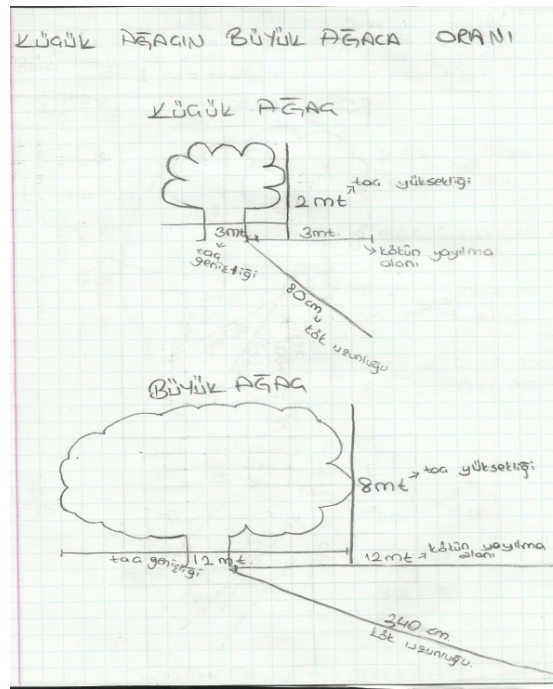 KÜÇÜK AĞACIN BÜYÜK AĞACA ORANI
KÜÇÜK AĞAÇ
2mt
taç yüksekliği
3mt.
3mt.
taç
genişliği
kökün yayılma
alanı
80 cm
kök uzunluğu
BÜYÜK AĞAÇ
8mt
taç yüksekliği
taç genişliği
12 mt.
12mt
kökün yayılma
alanı
340 cm.
kök uzunluğu.